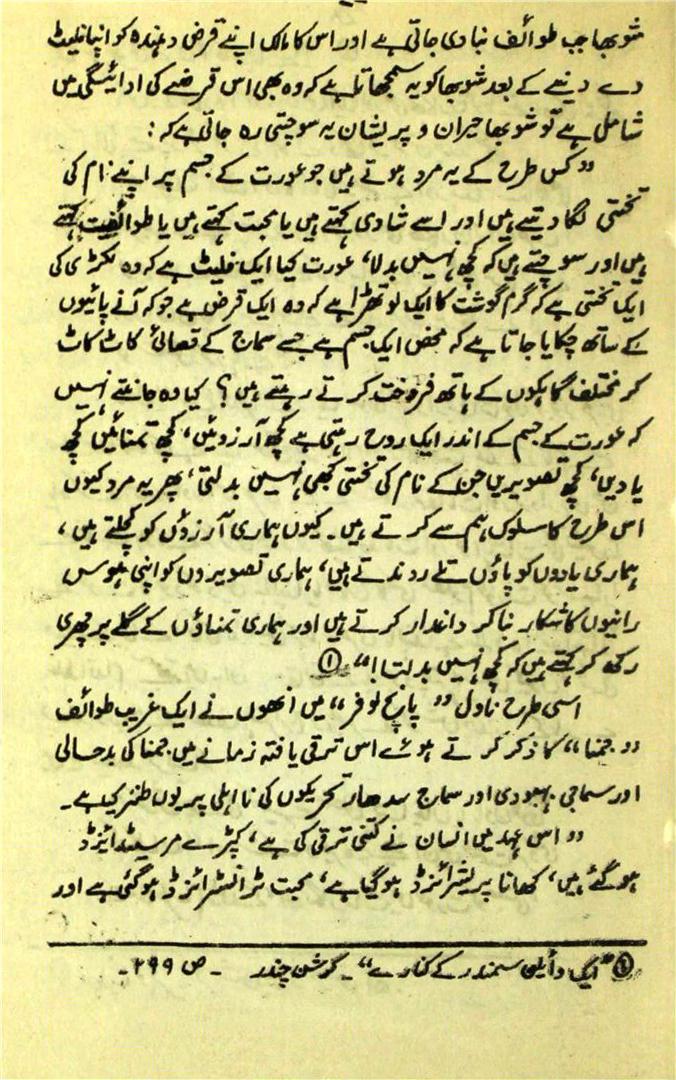 شوبھا جب طوائف بنا دی جاتی ہے اور اس کا مالک اپنے قرض دہندہ کو اپنا فلیٹ
دے دینے کے بعد شوبھا کو یہ سمجھاتا ہے کہ وہ بھی اس قرضے کی ادائیگی میں
شامل ہے تو شوبھا حیران و پریشان یہ سوچتی رہ جاتی ہے کہ :
"کس طرح کے یہ مرد ہوتے ہیں جو عورت کے جسم پر اپنے نام کی
تختی لگا دیتے ہیں اور اسے شادی کہتے ہیں یا محبت کہتے ہیں یا طوائفیت کہتے
ہیں اور سوچتے ہیں کہ کچھ نہیں بدلا، عورت کیا ایک فلیٹ ہے کہ وہ لکڑی کی
ایک تختی ہے کہ گرم گوشت کا ایک لوتھڑا ہے کہ وہ ایک قرض ہے جو کہ آنے پائیوں
کے ساتھ چکایا جاتا ہے کہ محض ایک جسم ہے جسے سماج کے قصائی کاٹ کاٹ
کر مختلف گاہکوں کے ہاتھ فروخت کرتے رہتے ہیں؟ کیا وہ جانتے نہیں
کہ عورت کے جسم کے اندر ایک روح رہتی ہے کچھ آرزوئیں، کچھ تمنائیں کچھ
یادیں، کچھ تصویریں جن کے نام کی تختی کبھی نہیں بدلتی، پھر یہ مرد کیوں
اس طرح کا سلوک ہم سے کرتے ہیں۔ کیوں ہماری آرزوؤں کو کچلتے ہیں،
ہماری یادوں کو پاؤں تلے روندتے ہیں، ہماری تصویروں کو اپنی ہوس
رانیوں کا شکار بنا کر داغدار کرتے ہیں اور ہماری تمناؤں کے گلے پر چھری
رکھ کر کہتے ہیں کہ کچھ نہیں بدلتا!" ①
اسی طرح ناول "پانچ لوفر" میں انھوں نے ایک غریب طوائف
"جمنا" کا ذکر کرتے ہوئے اس ترقی یافتہ زمانے میں جمنا کی بدحالی
اور سماجی بہبودی اور سماج سدھار تحریکوں کی نااہلی پر یوں طنز کیا ہے۔
"اس عہد میں انسان نے کتنی ترقی کی ہے، کپڑے مرسیڈائیزڈ
ہو گئے ہیں، کھانا پریشرائزڈ ہو گیا ہے، محبت ٹرانسٹرائزڈ ہو گئی ہے اور
① "ایک وائلن سمندر کے کنارے"۔ کرشن چندر ۔ ص ۲۹۹۔